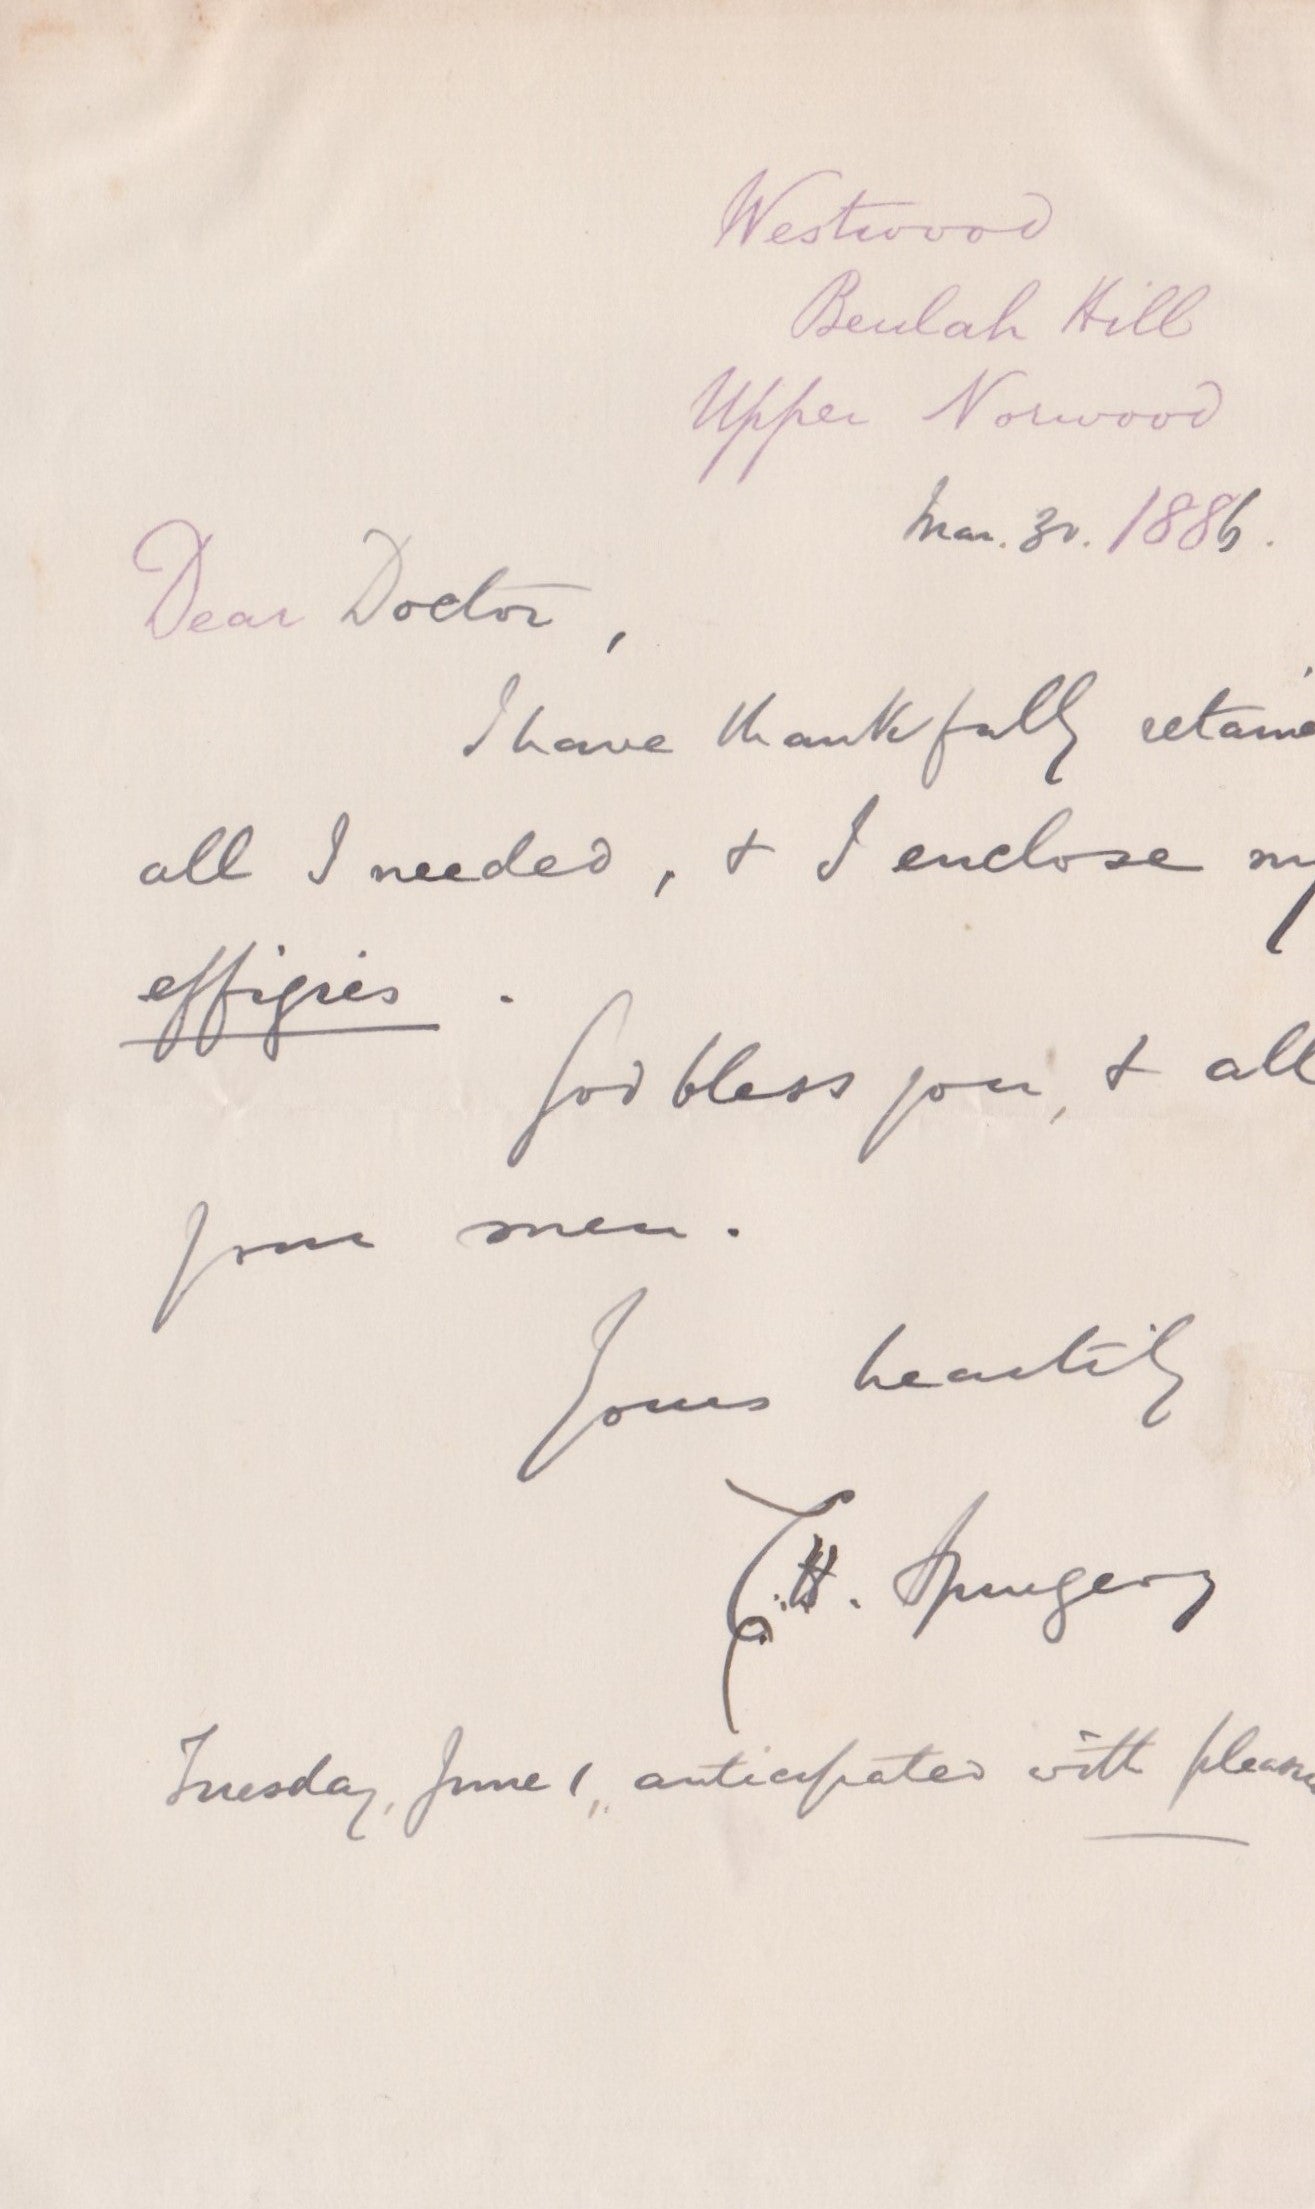 Westwood
Beulah Hill
Upper Norwood
Mar. 30. 1886.
Dear Doctor,
I have thankfully retaine
all I needed, & I enclose my
effigies.
God bless you, & all
your men.
Yours heartily
C. H. Spurgeon
Tuesday, June 1, anticipated with pleasu